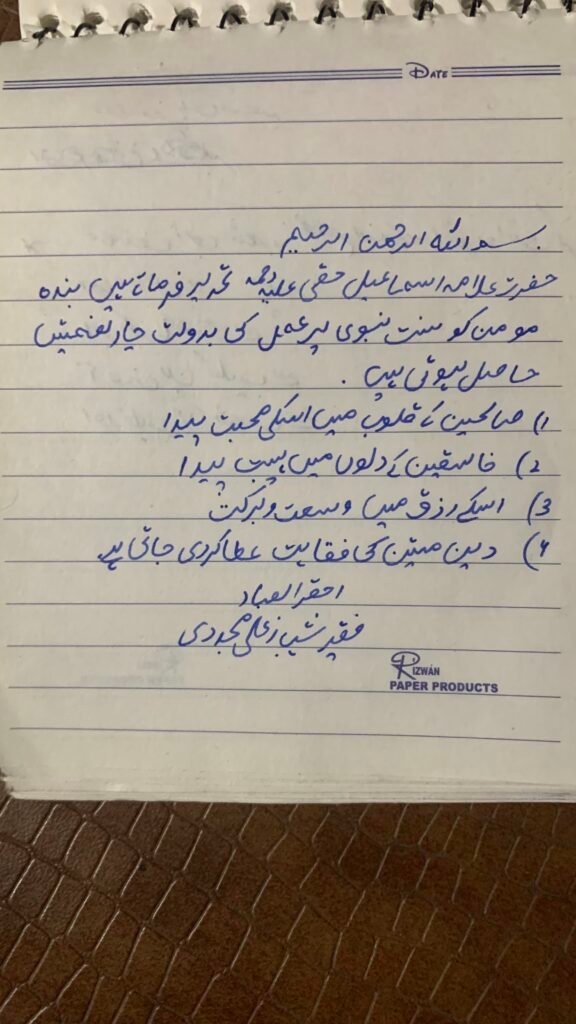 DATE
بسم اللہ الرحمن الرحیم
حضرت علامہ اسماعیل حقی علیہ رحمہ تحریر فرماتے ہیں بندہ
مومن کو سنت نبوی پر عمل کی بدولت چار نعمتیں
حاصل ہوتی ہیں.
1) صالحین کے قلوب میں اسکی محبت پیدا
2) فاسقین کے دلوں میں ہیبت پیدا
3) اسکے رزق میں وسعت و برکت
4) دین متین کی فقاہت عطا کردی جاتی ہے.
احقر العباد
فقیر شہباز علی مجددی
RIZWAN
PAPER PRODUCTS